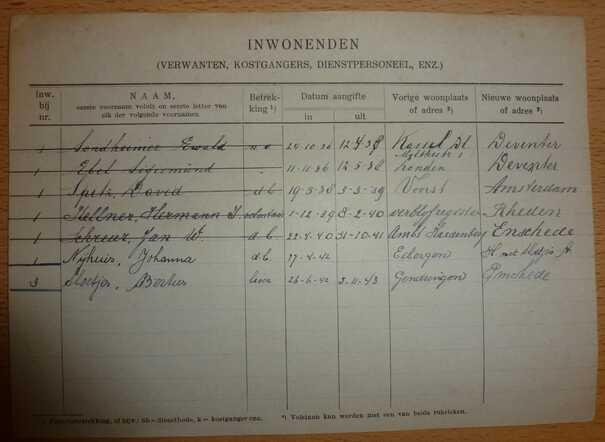 INWONENDEN
(VERWANTEN, KOSTGANGERS, DIENSTPERSONEEL, ENZ.)
Inw. bij nr. NAAM, eerste voornaam voluit en eerste letter van elk der volgende voornamen Betrekking ¹) Datum aangifte in uit Vorige woonplaats of adres ²) Nieuwe woonplaats of adres ²)
1 Sondheimer Ewald 29-10-36 12-4-38 Kassel Dl. Deventer
1 Ebel Siegmund 11-11-36 12-5-38 Londen Deventer
1 David d.b. 19-3-38 3-3-39 Vorst Amsterdam
1 Kellner, Hermann J. 1-12-39 8-2-40 verblijfregister Rheden
1 Schreur, Jan W. d.b. 22-4-40 31-10-41 Ambt Hardenberg Enschede
1 Nijhuis, Johanna d.b. 27-4-42
3 Bertus 26-6-42 2-11-43 Gendringen Enschede
²) Volstaan kan worden met een van beide rubrieken.